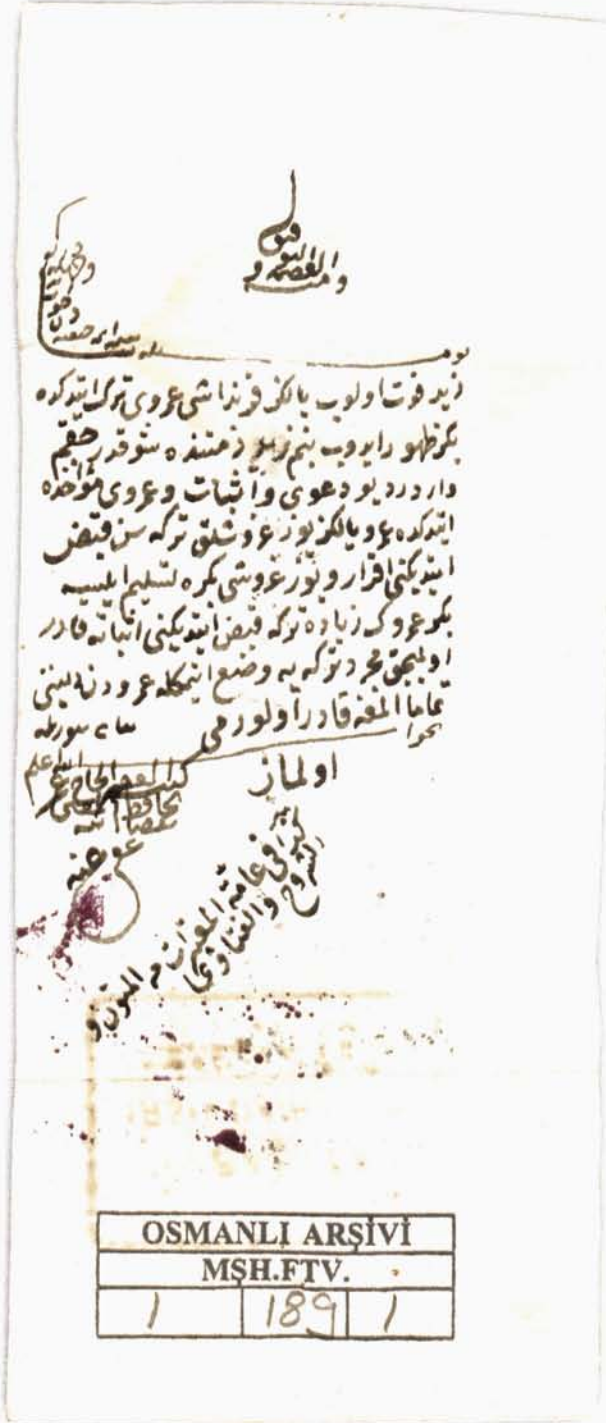 زيد فوت اولوب يالكز قرنداشى عمروى ترك ايتدكده
بكر ظهور ايدوب بنم زيد ذمتنده شو قدر حقم
واردر ديو دعوى واثبات وعمروى مؤاخذه
ايتدكده عمرو يالكز يوز غروشلق تركه سن قبض
ايتديكنى اقرار ويوز غروشى بكره تسليم ايليسه
بكر عمروك زياده تركه قبض ايتديكنى اثباته قادر
اولميجق مجرد تركه يه وضع ايتمكله عمرودن دينى
تماما المغه قادر اولورمى
الله اعلم
اولماز
كذا فى عامة المعتبرات من المتون و
الشروح والفتاوى
عفى عنه
OSMANLI ARŞİVİ
MŞH.FTV.
1 189 1